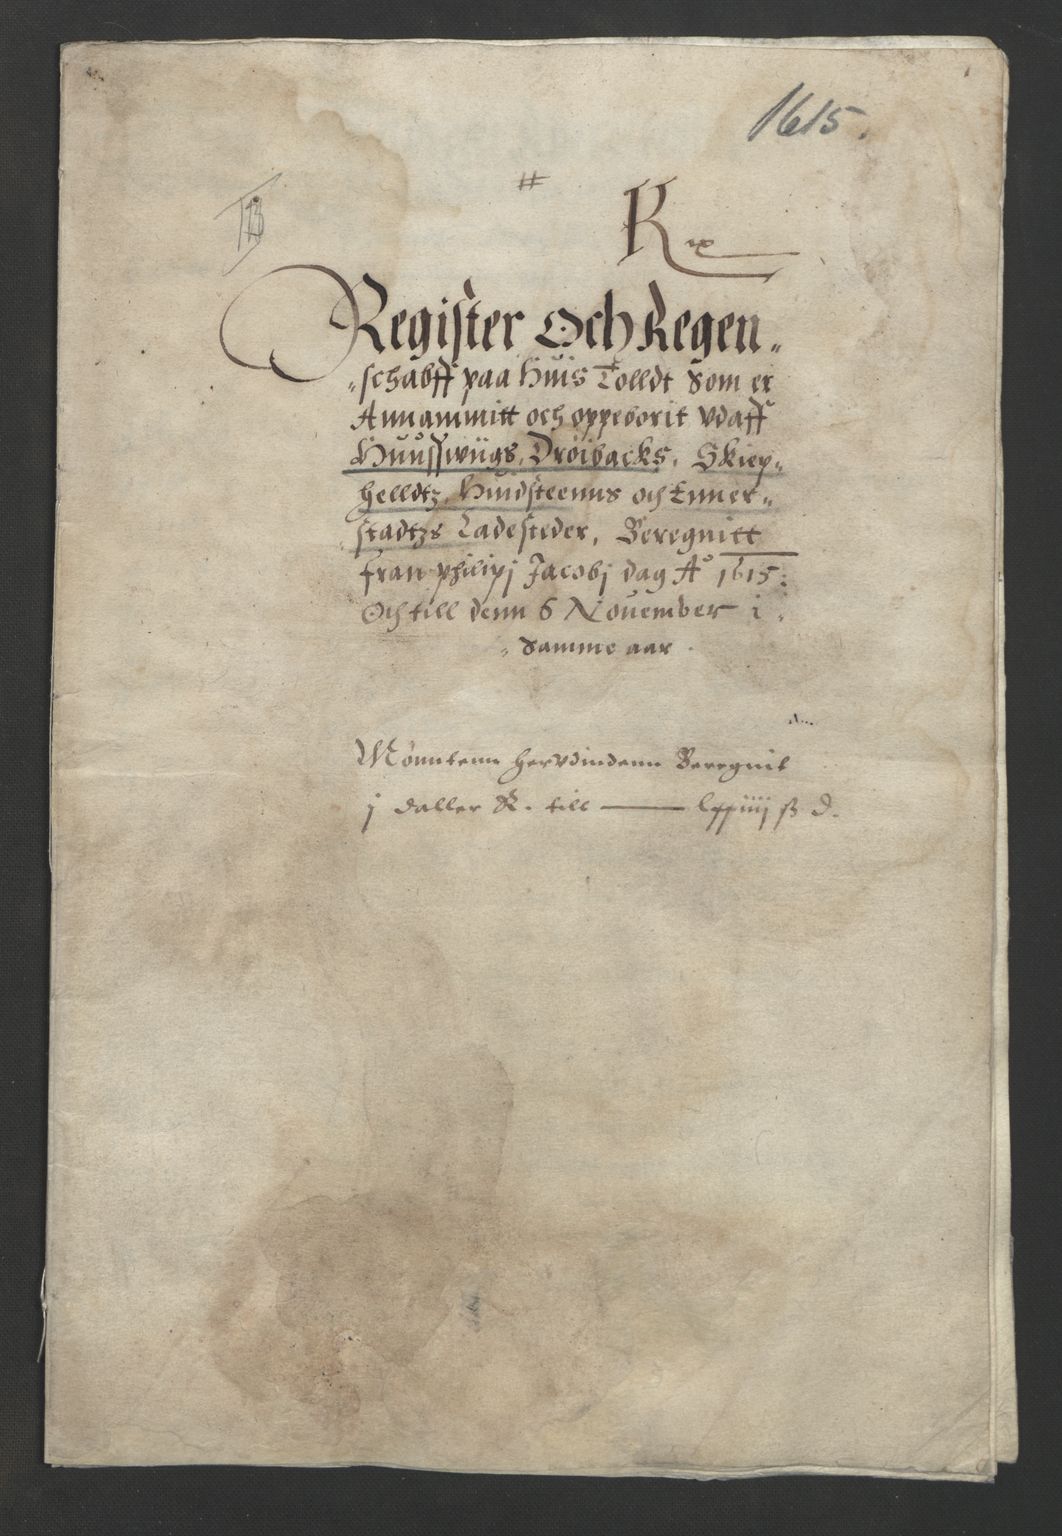 1615.
B
R ix
Register Och Regen„
„schabff paa huis Tolldt Som er
Annammitt och oppeborit vdaff
Huusswiigs, Dröibacks, Skiep„
helldtz, Huidsteenns och Emmer„
stadtzs Ladesteder, Beregnitt
fran philipj Jacobj dag A° 1615:
Och till denn 6 Nouember i
Samme aar
Mönntenn herudindenn Beregnit
j daller R. till —— lxxiiij ß d.